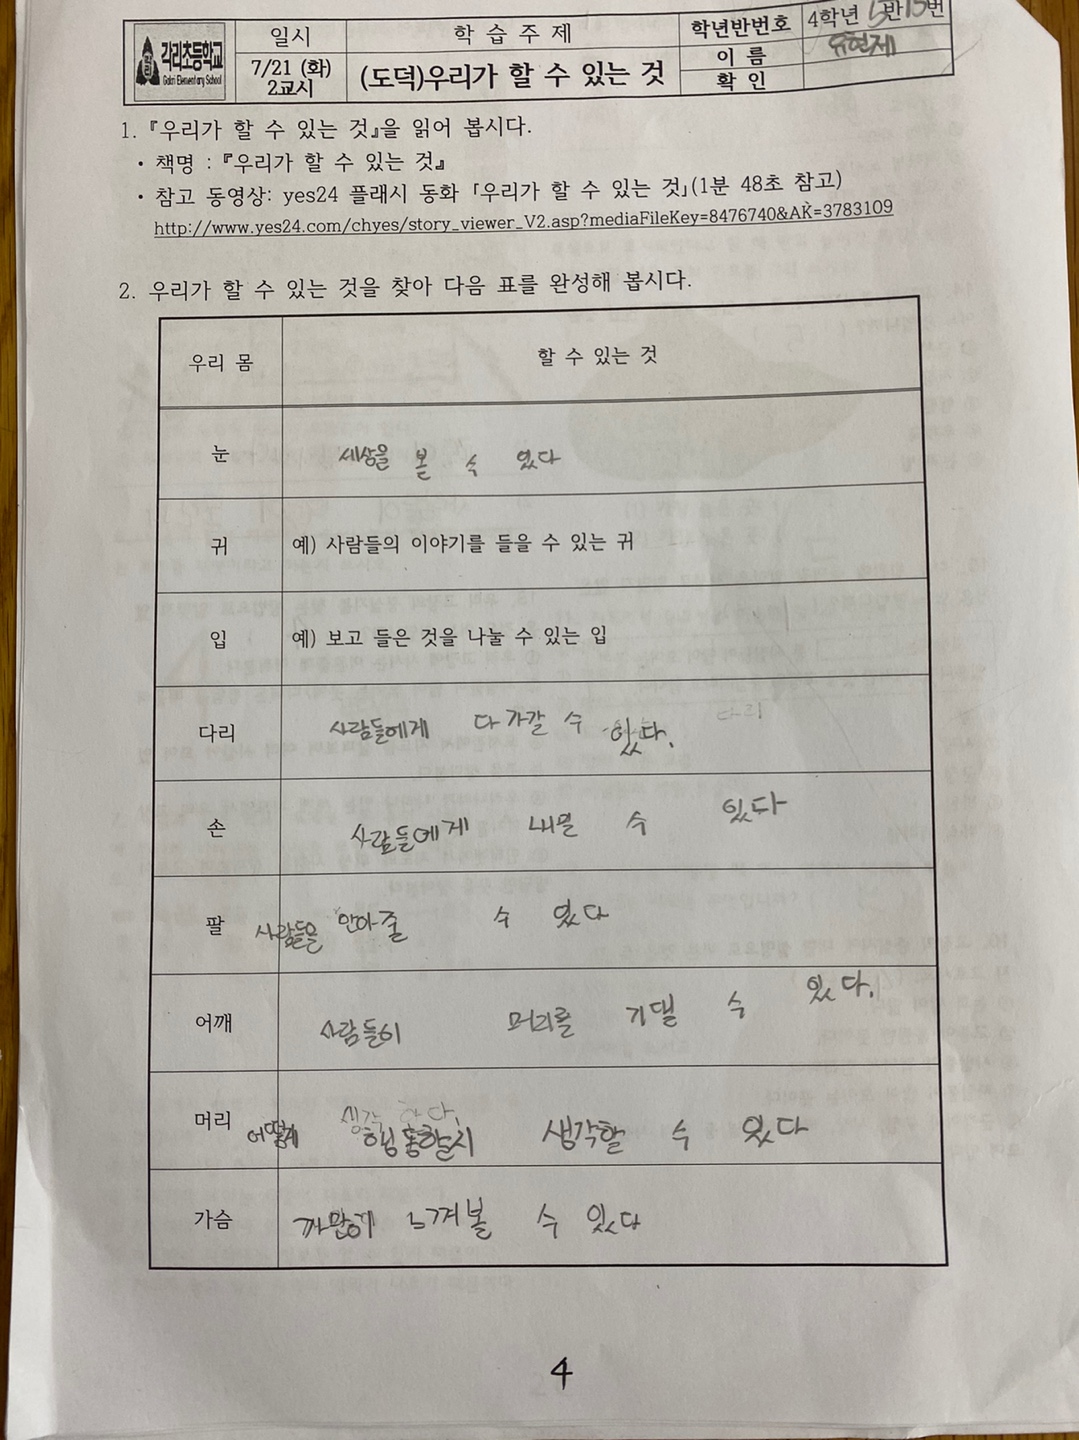 각리초등학교
Gakri Elementary School
일시
학 습 주 제
학년반번호
4학년 5반 15번
7/21 (화)
2교시
(도덕)우리가 할 수 있는 것
이 름
유현제
확 인
1. 『우리가 할 수 있는 것』을 읽어 봅시다.
· 책명 : 『우리가 할 수 있는 것』
· 참고 동영상: yes24 플래시 동화 「우리가 할 수 있는 것」(1분 48초 참고)
http://www.yes24.com/chyes/story_viewer_V2.asp?mediaFileKey=8476740&AK=3783109
2. 우리가 할 수 있는 것을 찾아 다음 표를 완성해 봅시다.
우리 몸
할 수 있는 것
눈
세상을 볼 수 있다
귀
예) 사람들의 이야기를 들을 수 있는 귀
입
예) 보고 들은 것을 나눌 수 있는 입
다리
사람들에게 다가갈 수 있다.
손
사람들에게 내밀 수 있다
팔
사람들을 안아줄 수 있다
어깨
사람들이 머리를 기댈 수 있다.
머리
생각 하다.
어떻게 행동할지 생각할 수 있다
가슴
느껴볼 수 있다
4